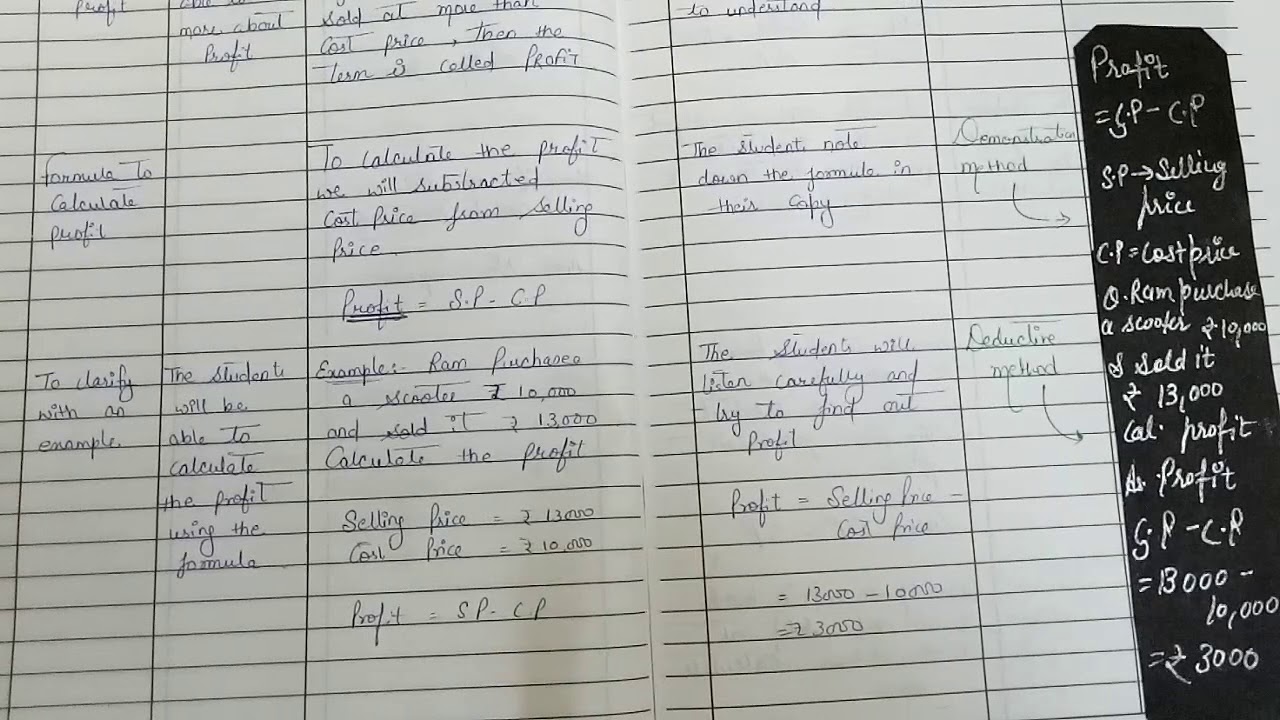 profit
able to
more about
Profit
sold at more than
Cost price, Then the
Term is called PROFIT
to understand
formula To
Calculate
profit
To Calculate the profit
we will substracted
Cost Price from selling
Price.
Profit = S.P - C.P
The student note
down the formula in
their copy
Demonstration
method
To clarify
with an
example.
The students
will be
able to
calculate
the profit
using the
formula
Example:- Ram Purchases
a scooter ₹ 10,000
and sold it ₹ 13,000
Calculate the profit
Selling Price = ₹ 13000
Cost Price = ₹ 10,000
Profit = SP - CP
The students will
listen carefully and
try to find out
Profit
Profit = Selling Price -
Cost Price
= 13000 - 10000
= ₹ 3000
Deductive
method
Profit
= S.P - C.P
S.P → Selling
price
C.P = Cost price
Q. Ram purchase
a scooter ₹ 10,000
& sold it
₹ 13,000
Cal. profit
As. Profit
S.P - C.P
= 13000 -
10,000
= ₹ 3000